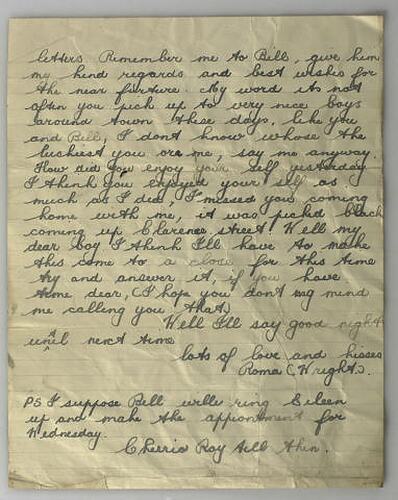 letters Remember me to Bill, give him
my kind regards and best wishes for
the near furture. My word its not
often you pick up to very nice boys
around town these days, like you
and Bill, I don't know whose the
luckiest you ore me, say me anyway.
How did you enjoy your self yesterday
I think you enjoyed your self as
much as I did, I missed you coming
home with me, it was picth black
coming up Clarence street Well my
dear boy I think I'll have to make
this come to a close for this time
try and answer it, if you have
time dear, (I hope you don't mind
me calling you that)
Well I'll say good night
until next time
lots of love and kisses
Roma (Wright).
PS I suppose Bill wille ring Eileen
up and make the appointment for
Wednesday.
Cherrio Roy till then.